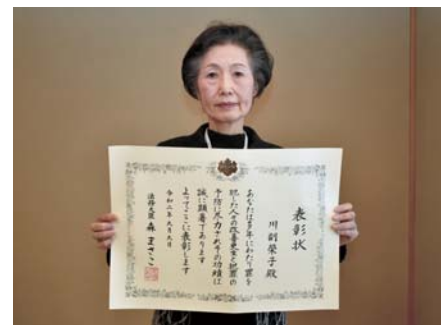 表彰状
川副榮子殿
あなたは多年にわたり罪を
犯した人々の改善更生と犯罪の
予防に尽力されその功績は
誠に顕著であります
よってここに表彰します
令和二年九月九日
法務大臣 森まさこ